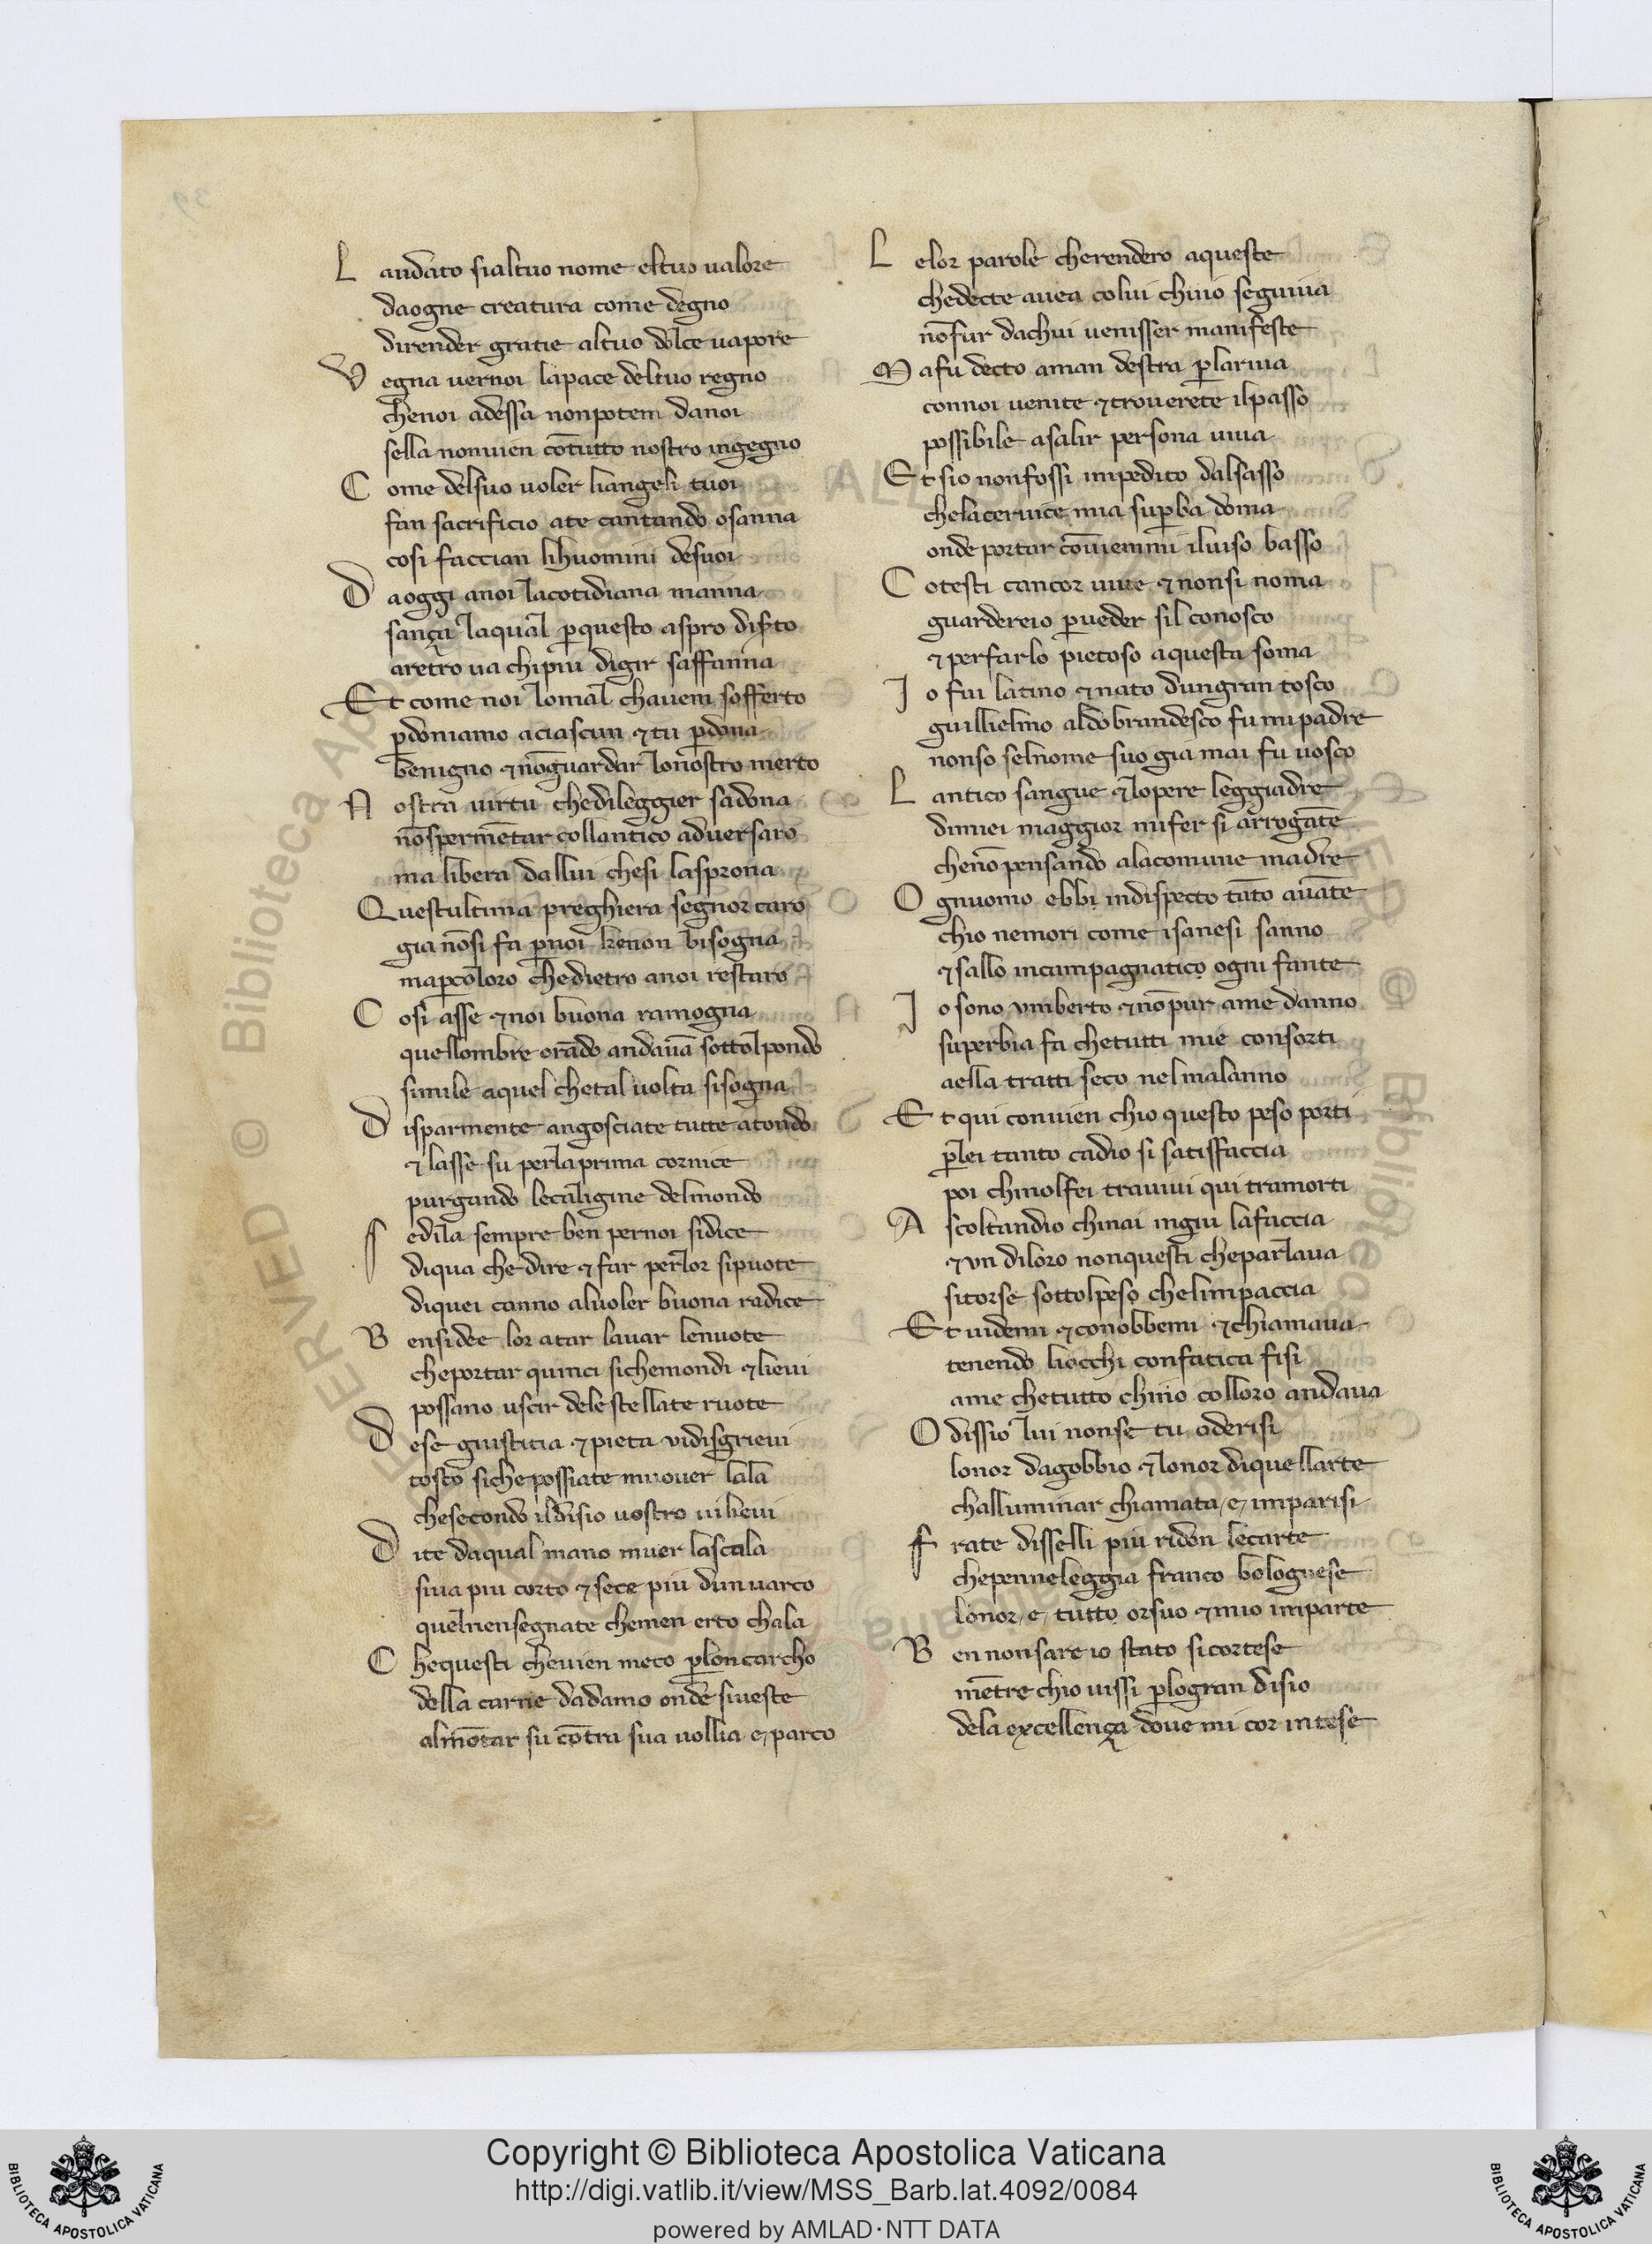 L audato sialtuo nome eltuo ualore
daogne creatura come degno
dirender gratie altuo dolce uapore
V egna uernoi lapace deltuo regno
chenoi adessa nonpotem danoi
sella nonuien cōtutto nostro ingegno
C ome delsuo uoler liangeli tuoi
fan sacrificio ate cantando osanna
cosi faccian lihuomini desuoi
D aoggi anoi lacotidiana manna
sança laqual ꝑquesto aspro diserto
aretro ua chipiu digir saffanna
Et come noi lomal chauem sofferto
ꝑdoniamo aciascun ⁊ tu ꝑdona
benigno ⁊ nōguardar lonostro merto
N ostra uirtu chedileggier sadona
nōspermētar collantico aduersaro
ma libera dallui chesi lasprona
Questultima preghiera segnor caro
gia nōsi fa ꝑnoi kenon bisogna
maꝑcoloro chedietro anoi restaro
C osi asse ⁊ noi buona ramogna
quellombre orādo andauā sottolpondo
simile aquel chetal uolta sisogna
D isparmente angosciate tutte atondo
⁊ lasse su perlaprima cornice
purgando lecaligine delmondo
S edila sempre ben pernoi sidice
diqua che dire ⁊ far perlor sipuote
diquei canno aluoler buona radice
B ensidee lor atar lauar lenuote
cheportar quinci sichemondi ⁊ lieui
possano uscir dele stellate ruote
D ese giustitia ⁊ pieta uidisgrieui
tosto sichepossiate muouer lala
chesecondo ildisio uostro uilieui
D ite daqual mano muer lascala
siua piu corto ⁊ sece piu dunuarco
quelnensegnate chemen erto chala
C hequesti cheuien meco ꝑloncarcho
della carne dadamo onde siueste
almōtar su cōtra sua uollia e parco
L elor parole cherendero aqueste
chedette auea colui chuio seguiua
nōfur dachui uenisser manifeste
M afu decto aman destra ꝑlariua
connoi uenite ⁊ trouerete ilpasso
possibile asalir persona uiua
Et sio nonfossi impedito dalsasso
chelaceruice mia suꝑba doma
onde portar cōuiemmi iluiso basso
C otesti cancor uiue ⁊ nonsi noma
guardereio ꝑueder sil conosco
⁊ perfarlo pietoso aquesta soma
I o fui latino ⁊ nato dungran tosco
guillielmo aldobrandesco fu mipadre
nonso selnome suo gia mai fu uosco
L antico sangue ⁊ lopere leggiadre
dimiei maggior mifer si arrogāte
chenōpensando alacomune madre
O gnuomo ebbi indispecto tāto auāte
chio nemori come isanesi sanno
⁊ sallo incampagnatico ogni fante
I o sono vmberto ⁊ nōpur ame danno
superbia fa chetutti mie consorti
aella tratti seco nelmalanno
Et qui conuien chio questo peso porti
ꝑlei tanto cadio si satisfaccia
poi chinolfei trauiui qui tramorti
A scoltandio chinai ingiu lafaccia
⁊ vn diloro nonquesti cheparlaua
sitorse sottolpeso chelimpaccia
Et uidemi ⁊ conobbemi ⁊ chiamaua
tenendo liocchi confatica fisi
ame chetutto chino colloro andaua
O dissio lui nonse tu oderisi
lonor dagobbio ⁊ lonor diquellarte
challuminar chiamata e imparisi
F rate disselli piu ridon lecarte
chepenneleggia franco bolognese
lonor e tutto orsuo ⁊ mio imparte
B en nonsare io stato sicortese
mētre chio uissi ꝑlogran disio
dela excellença doue mi cor intese
Copyright © Biblioteca Apostolica Vaticana
http://digi.vatlib.it/view/MSS_Barb.lat.4092/0084
powered by AMLAD·NTT DATA
BIBLIOTECA APOSTOLICA VATICANA
BIBLIOTECA APOSTOLICA VATICANA